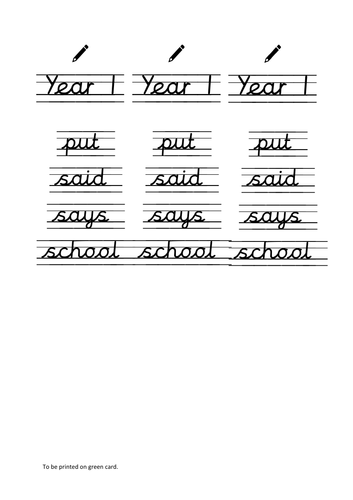 Year 1 Year 1 Year 1
put put put
said said said
says says says
school school school
To be printed on green card.